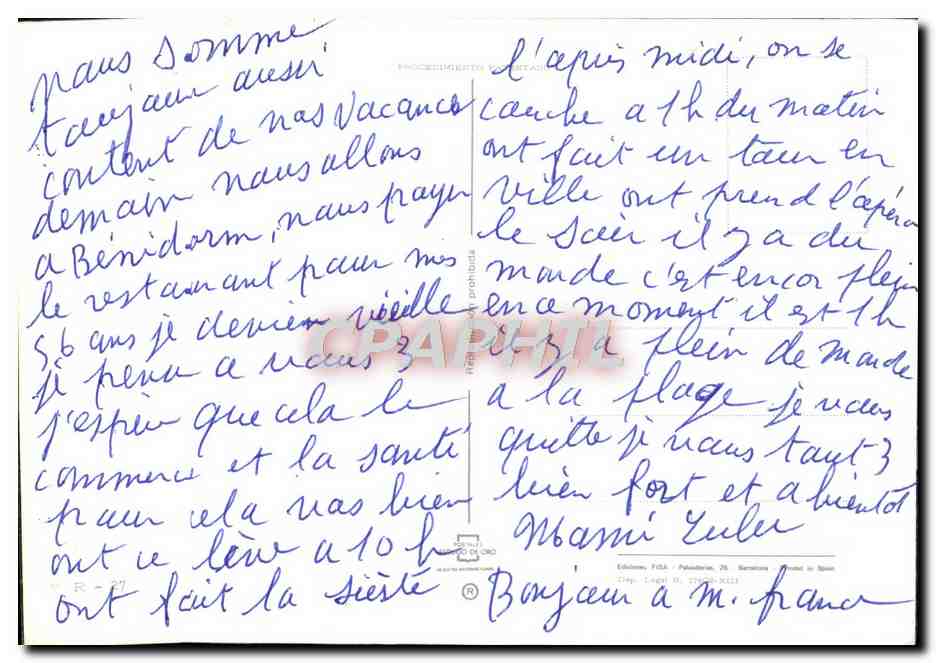 nous somme
toujour aussi
content de nos vacances
demain nous allons
a Bénidorm, nous payer
le restaurant pour mes
56 ans je devien vieille
je pense a vous 3
j'espère que cela le
commerce et la santé
pour cela vas bien
ont ce lève a 10 h
ont fait la siéste
l'après midi, on se
couche a 1h du matin
ont fait un tour en
ville ont prend l'apéro
le soir il y a du
monde c'est encor plein
en ce moment il est 1h
il y a plein de monde
a la plage je vous
quitte je vous tout 3
bien fort et a bientôt
Mami
Bonjour a m. france
PROCEDIMIENTO
prohibida
CPAPHIL
POSTALES
ESCUDO DE ORO
®
R - 27
Ediciones, FISA - Palaudarias, 26. Barcelona - Printed in Spain
Dep. Legal B.